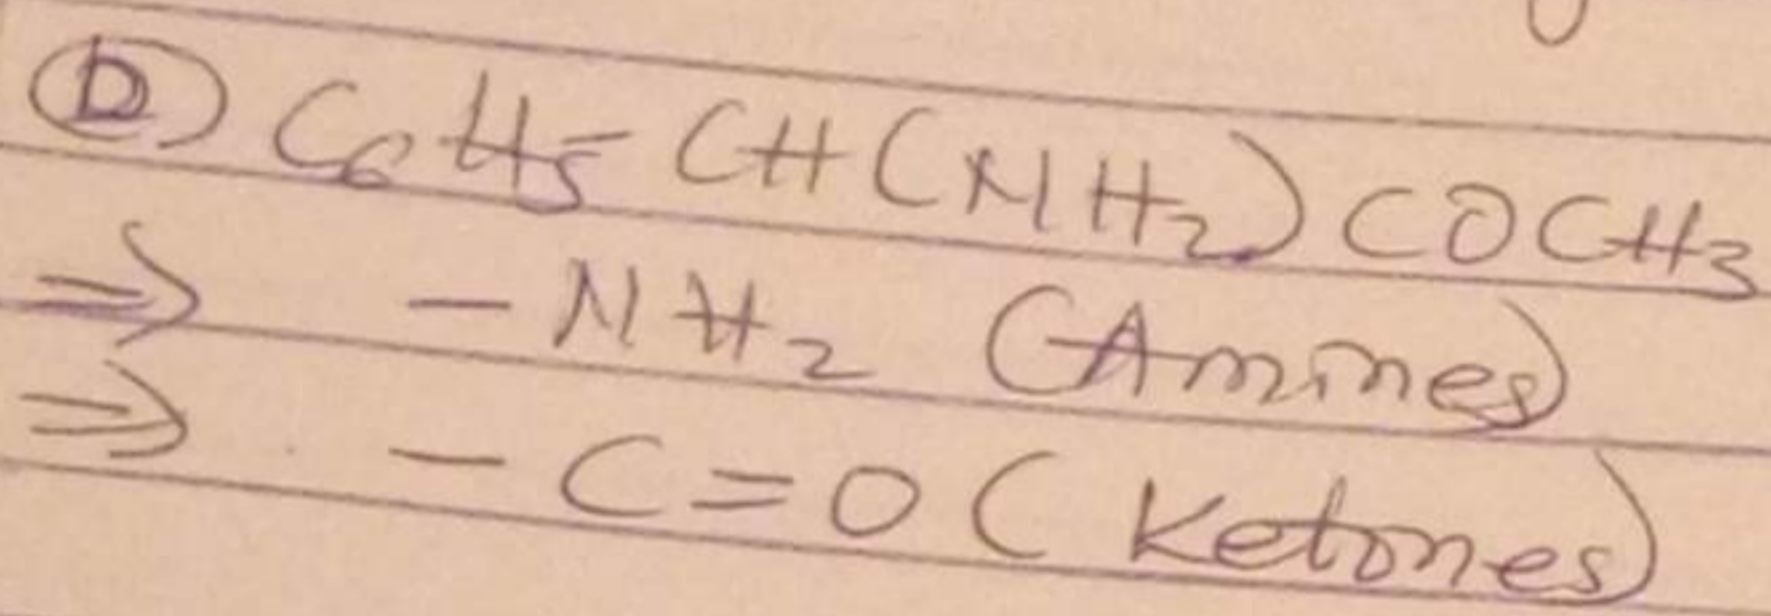 Ⓓ C₆H₅CH(NH₂)COCH₃
⇒ -NH₂ (Amines)
⇒ -C=O (Ketones)